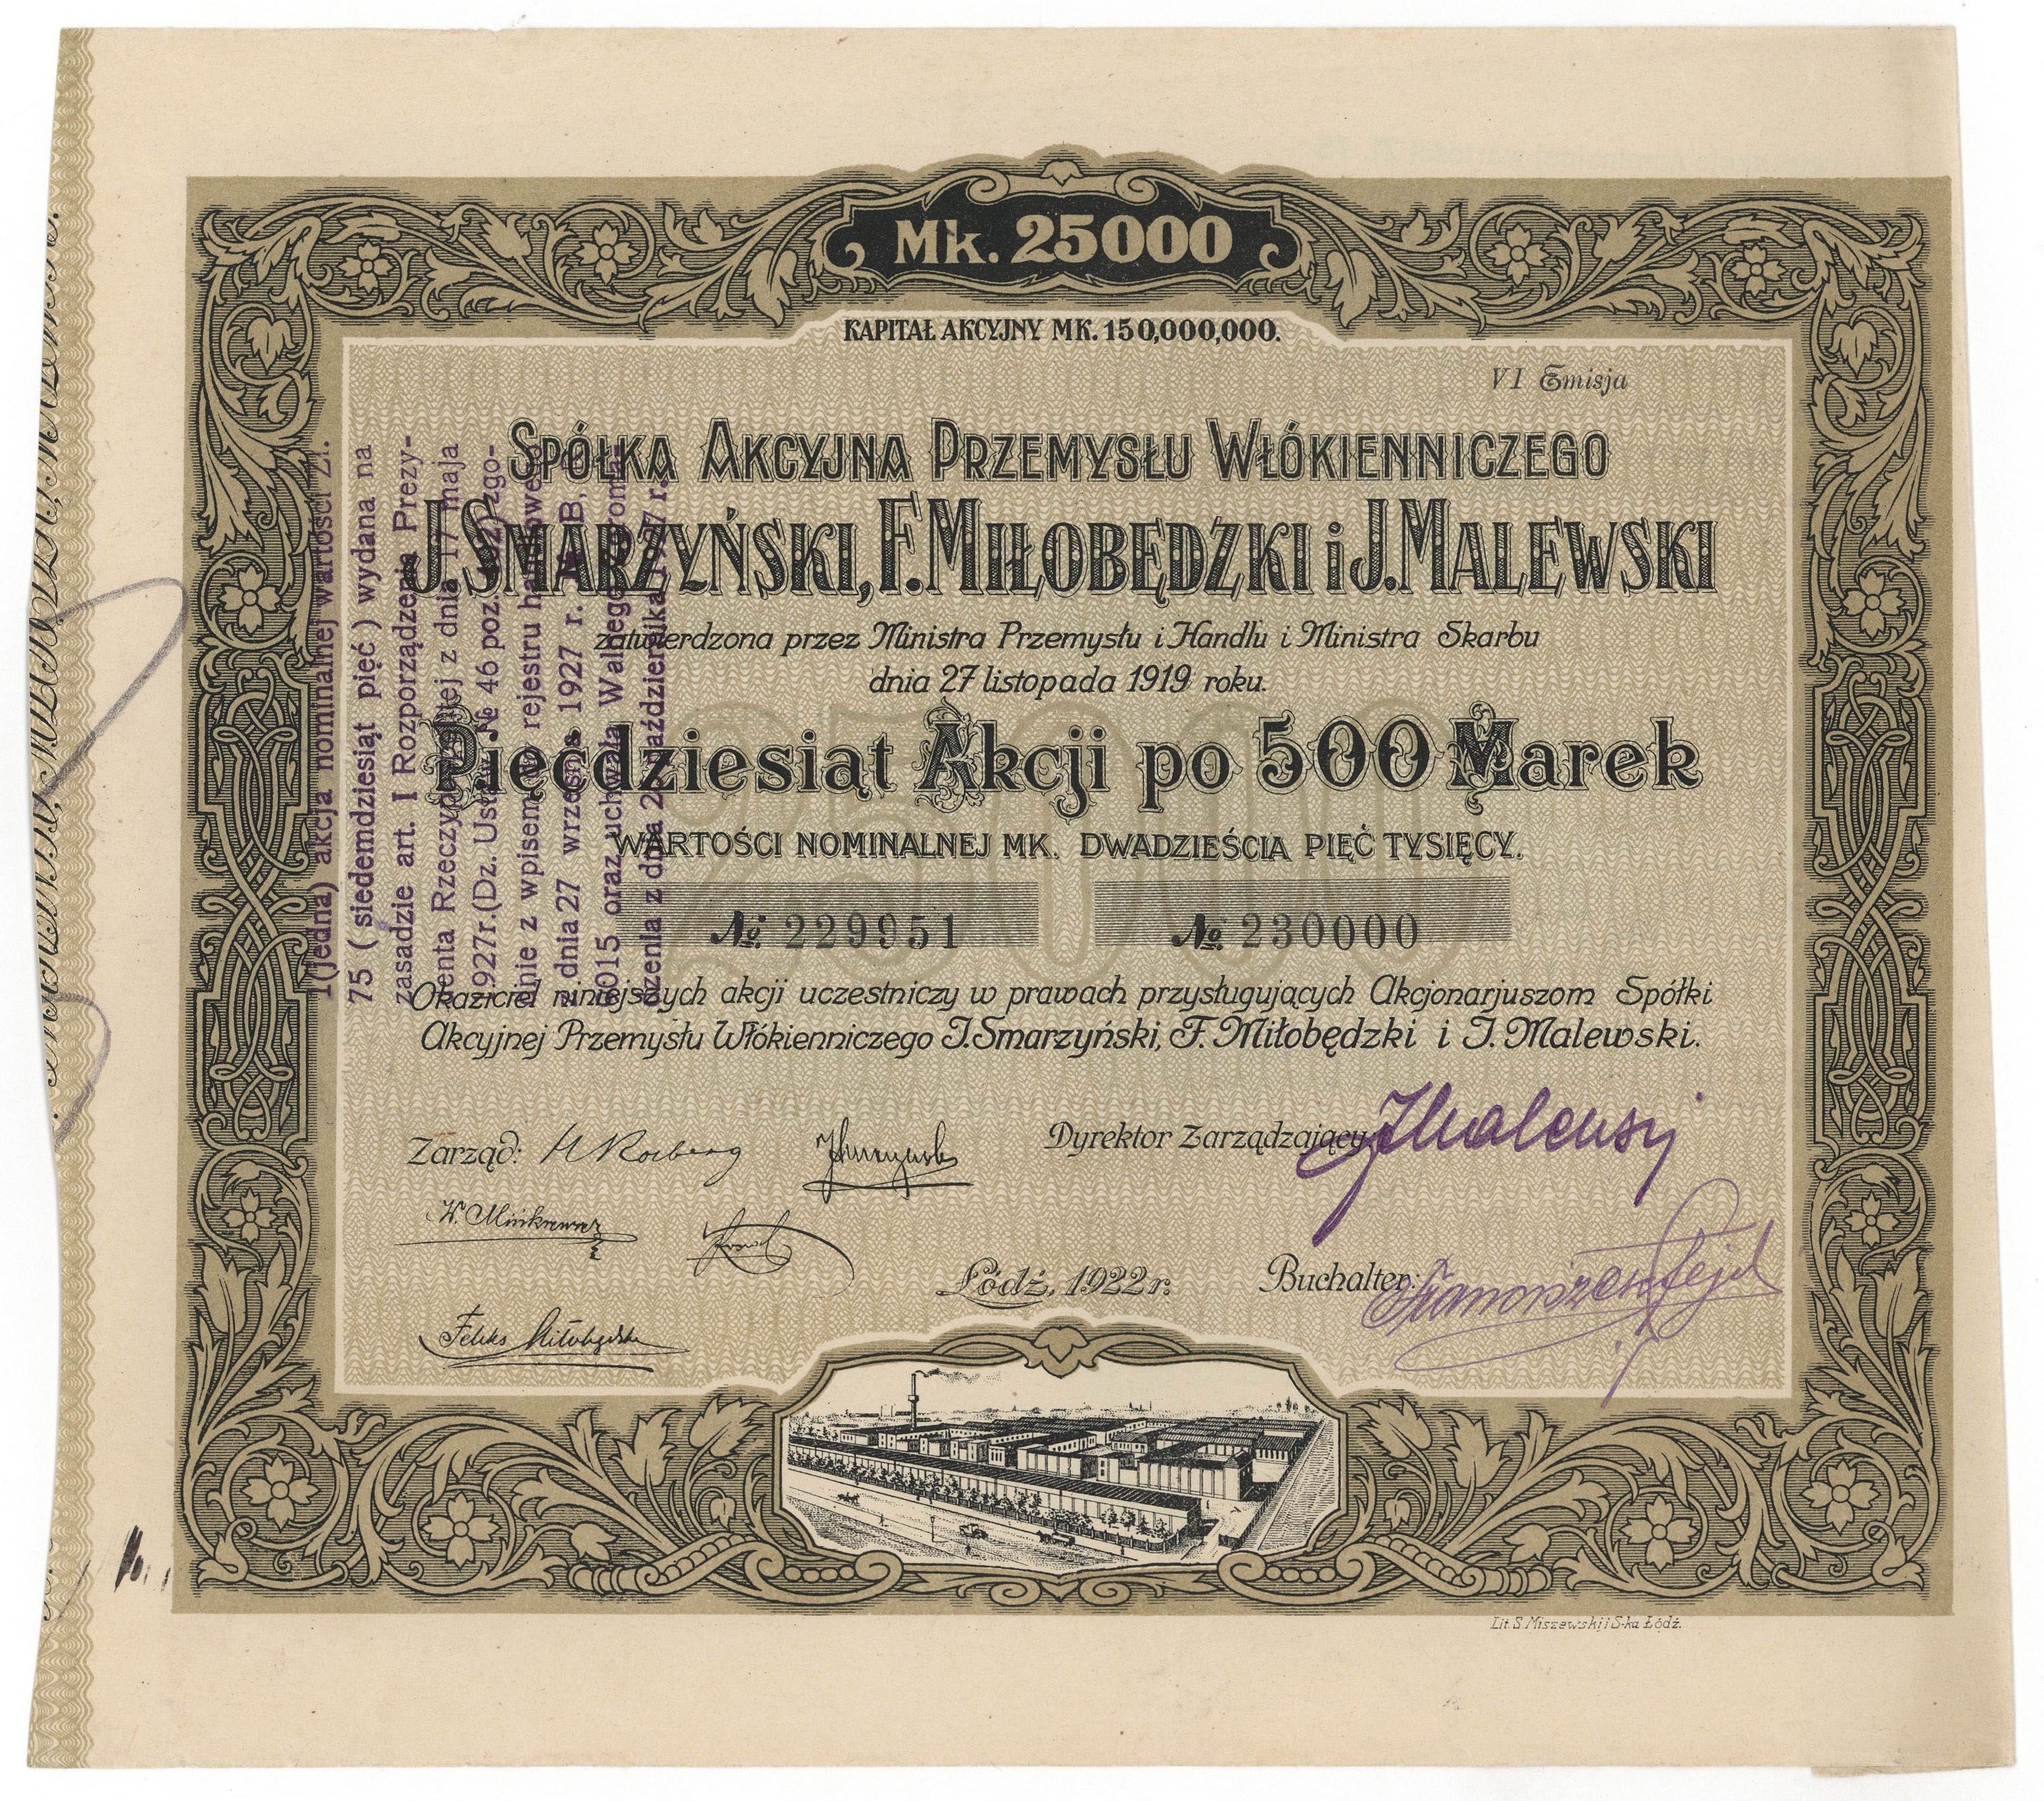 Mk. 25000
KAPITAŁ AKCYJNY MK. 150,000,000.
VI Emisja
SPÓŁKA AKCYJNA PRZEMYSŁU WŁÓKIENNICZEGO
J. SMARZYŃSKI, F. MIŁOBĘDZKI i J. MALEWSKI
zatwierdzona przez Ministra Przemysłu i Handlu i Ministra Skarbu
dnia 27 listopada 1919 roku.
Pięćdziesiąt Akcji po 500 Marek
WARTOŚCI NOMINALNEJ MK. DWADZIEŚCIA PIĘĆ TYSIĘCY.
№ 229951 № 230000
Okaziciel niniejszych akcji uczestniczy w prawach przysługujących Akcjonarjuszom Spółki
Akcyjnej Przemysłu Włókienniczego J. Smarzyński, F. Miłobędzki i J. Malewski.
Zarząd: Dyrektor Zarządzający:
Łódź, 1922 r. Buchalter:
Feliks Miłobędzki
Lit. S. Miszewski i S-ka Łódź.
1 (jedna) akcja nominalnej wartości Zł.
75 (siedemdziesiąt pięć) wydana na
zasadzie art. I Rozporządzenia Prezy-
denta Rzeczypospolitej z dnia 17 maja
1927r. (Dz. Ustaw № 46 poz. zgo-
dnie z wpisem do rejestru handlowego
z dnia 27 września 1927 r. B.
6015 oraz uchwałą Walnego Zgroma-
dzenia z dnia października 1927 r.